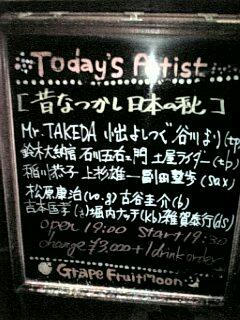 Today's Artist
[昔なつかし日本の秋]
Mr. TAKEDA 小出よしつぐ 谷川より(tp)
鈴木大納言 石川五右ェ門 土屋ライダー(tb)
稲川恭子 上杉雄一 副田整歩(sax)
松原康治(vo.g) 古谷圭介(b)
吉本匡孝 堀内ナッテ(kb) 雑賀恭行(ds)
open 19:00 Start 19:30
charge ¥3,000+1drink order
GrapeFruitMoon